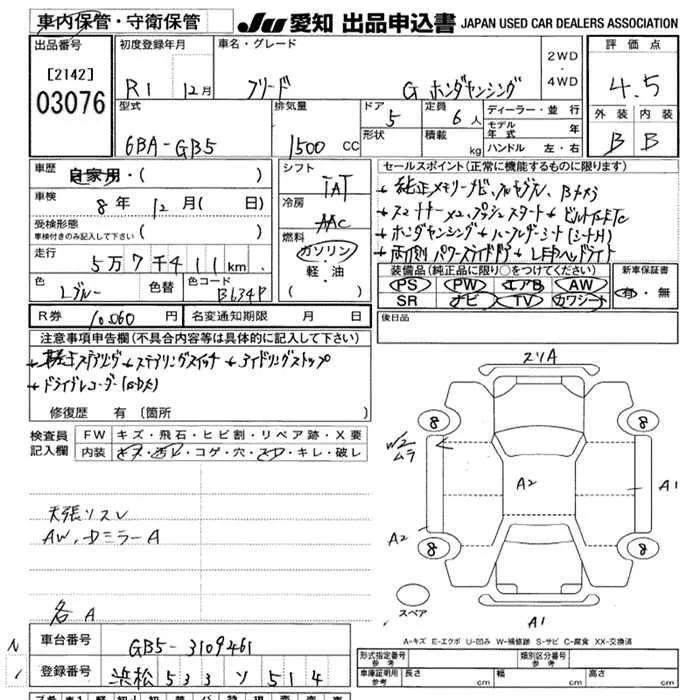 車内保管・守衛保管
JU 愛知 出品申込書 JAPAN USED CAR DEALERS ASSOCIATION
出品番号
[2142]
03076
初度登録年月
R1 12月
車名・グレード
フリード G ホンダセンシング
2WD
・
4WD
評価点
4.5
外装 内装
B B
型式
6BA-GB5
排気量
1500 CC
ドア
5
形状
定員
6人
積載
kg
ディーラー・並行
モデル年式 年
ハンドル 左・右
車歴 自家用・( )
車検 8年 12月( 日)
受検形態
車検付きのみ記入して下さい ( )
走行 5万7千411km
色 Lブルー 色替 色コード B634P
シフト
IAT
冷房
AAC
燃料
ガソリン
・
軽・油
セールスポイント(正常に機能するものに限ります)
純正メモリーナビ、フルセグTV、Bカメラ
スマートキー×2、プッシュスタート ビルトインETC
ホンダセンシング ハーフレザーシート(シートH)
両側パワースライドドア LEDヘッドライト
装備品(純正品に限り○をつけてください)
PS PW エアB AW
SR ナビ TV カワシート
新車保証書
有・無
R券 10,060円 名変通知期限 月 日
後日品
注意事項申告欄(不具合内容等は具体的に記入して下さい)
ステアリング ステアリングスイッチ アイドリングストップ
ドライブレコーダー
修復歴 有(箇所 )
検査員
記入欄
FW キズ・飛石・ヒビ割・リペア跡・X要
内装 キズ・汚レ・コゲ・穴・スレ・キレ・破レ
天張リスレ
AW、Dミラー A
各A
スリA
8 8
W/2
ムラ
A2 A1
A2
8 8
スペア
A1
A-キズ E-エクボ U-凹み W-補修跡 S-サビ C-腐食 XX-交換済
車台番号 GB5-3109461
登録番号 浜松 533 ソ 514
形式指定番号
参考
類別区分番号
参考
車庫証明用
参考
長さ cm 幅 cm 高さ cm